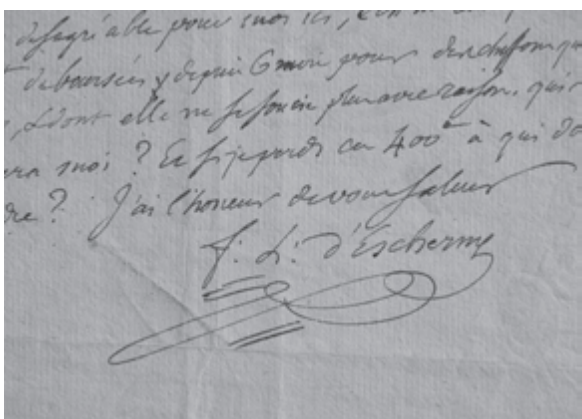 desagréable pour moi ici,
deboursées y depuis 6 mois pour des chiffons qu
, & dont elle ne se soucie plus avec raison. qui
ra moi ? Et si je perds ces 400 à qui d
re ? J'ai l'honneur de vous saluer
f: L: d'Escherny